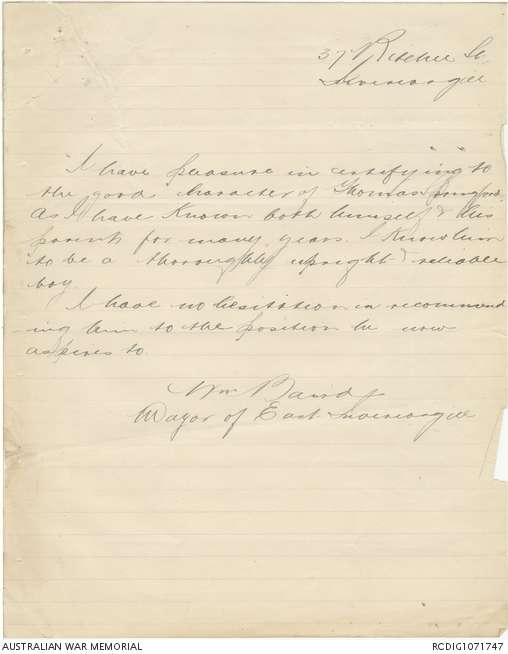 37 Ritchie St
Invercargill
I have pleasure in certifying to
the good character of Thomas
As I have Known both himself & his
parents for many years. I Know him
to be a thoroughly upright & reliable
boy.
I have no hesitation in recommend
ing him to the position he now
aspires to.
Wm Baird
Mayor of East Invercargill
AUSTRALIAN WAR MEMORIAL
RCDIG1071747